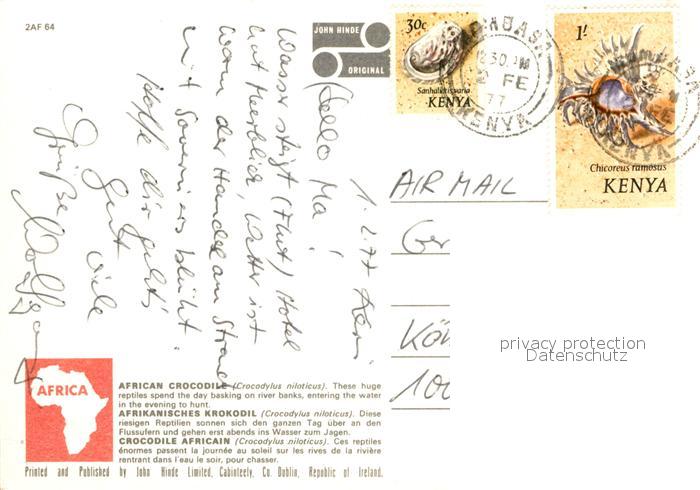 2AF 64
JOHN HINDE
ORIGINAL
30c
Sanhaliotis varia
KENYA
MOMBASA
30 PM
2 FE
77
KENYA
1/-
Chicoreus ramosus
KENYA
1.2.77
Hello Ma!
Wasser steigt (Flut) Hotel
hat Meerblick, Wetter ist
warm der Handel am Strand
mit Souvenirs blüht.
Hoffe dir geht's
gut viele
Grüße Wolfgang
AIR MAIL
Ger
Köl
100
privacy protection
Datenschutz
AFRICA
AFRICAN CROCODILE (Crocodylus niloticus). These huge
reptiles spend the day basking on river banks, entering the water
in the evening to hunt.
AFRIKANISCHES KROKODIL (Crocodylus niloticus). Diese
riesigen Reptilien sonnen sich den ganzen Tag über an den
Flussufern und gehen erst abends ins Wasser zum Jagen.
CROCODILE AFRICAIN (Crocodylus niloticus). Ces reptiles
énormes passent la journée au soleil sur les rives de la rivière
rentrant dans l'eau le soir, pour chasser.
Printed and Published by John Hinde Limited, Cabinteely, Co. Dublin, Republic of Ireland.